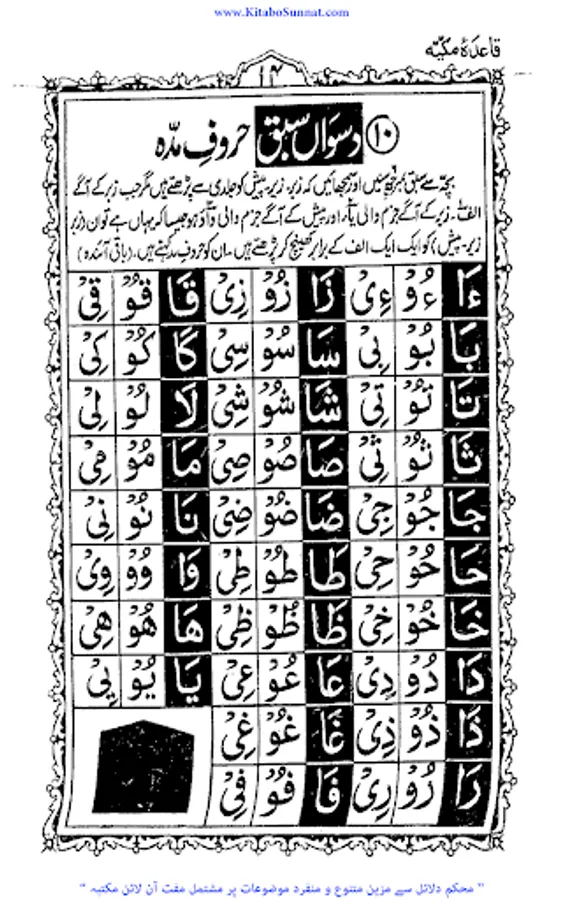 www.KitaboSunnat.com
قاعدۂ مکیّہ
۱۴
۱۰ دسواں سبق حروفِ مدّہ
بچّہ سے سبق نمبر ۳ سنیں اور سمجھائیں کہ زبر، زیر، پیش کو جلدی سے پڑھتے ہیں مگر جب زبر کے آگے
الف، زیر کے آگے جزم والی یاء، اور پیش کے آگے جزم والی واؤ ہو جیسا کہ یہاں ہے تو ان (زبر
زیر، پیش) کو ایک ایک الف کے برابر کھینچ کر پڑھتے ہیں۔ ان کو حروفِ مدہ کہتے ہیں۔ (باقی آئندہ)
ءَا ءُوْ ءِیْ زَا زُوْ زِیْ قَا قُوْ قِیْ
بَا بُوْ بِیْ سَا سُوْ سِیْ کَا کُوْ کِیْ
تَا تُوْ تِیْ شَا شُوْ شِیْ لَا لُوْ لِیْ
ثَا ثُوْ ثِیْ صَا صُوْ صِیْ مَا مُوْ مِیْ
جَا جُوْ جِیْ ضَا ضُوْ ضِیْ نَا نُوْ نِیْ
حَا حُوْ حِیْ طَا طُوْ طِیْ وَا وُوْ وِیْ
خَا خُوْ خِیْ ظَا ظُوْ ظِیْ هَا هُوْ هِیْ
دَا دُوْ دِیْ عَا عُوْ عِیْ یَا یُوْ یِیْ
ذَا ذُوْ ذِیْ غَا غُوْ غِیْ
رَا رُوْ رِیْ فَا فُوْ فِیْ
" محکم دلائل سے مزین متنوع و منفرد موضوعات پر مشتمل مفت آن لائن مکتبہ "